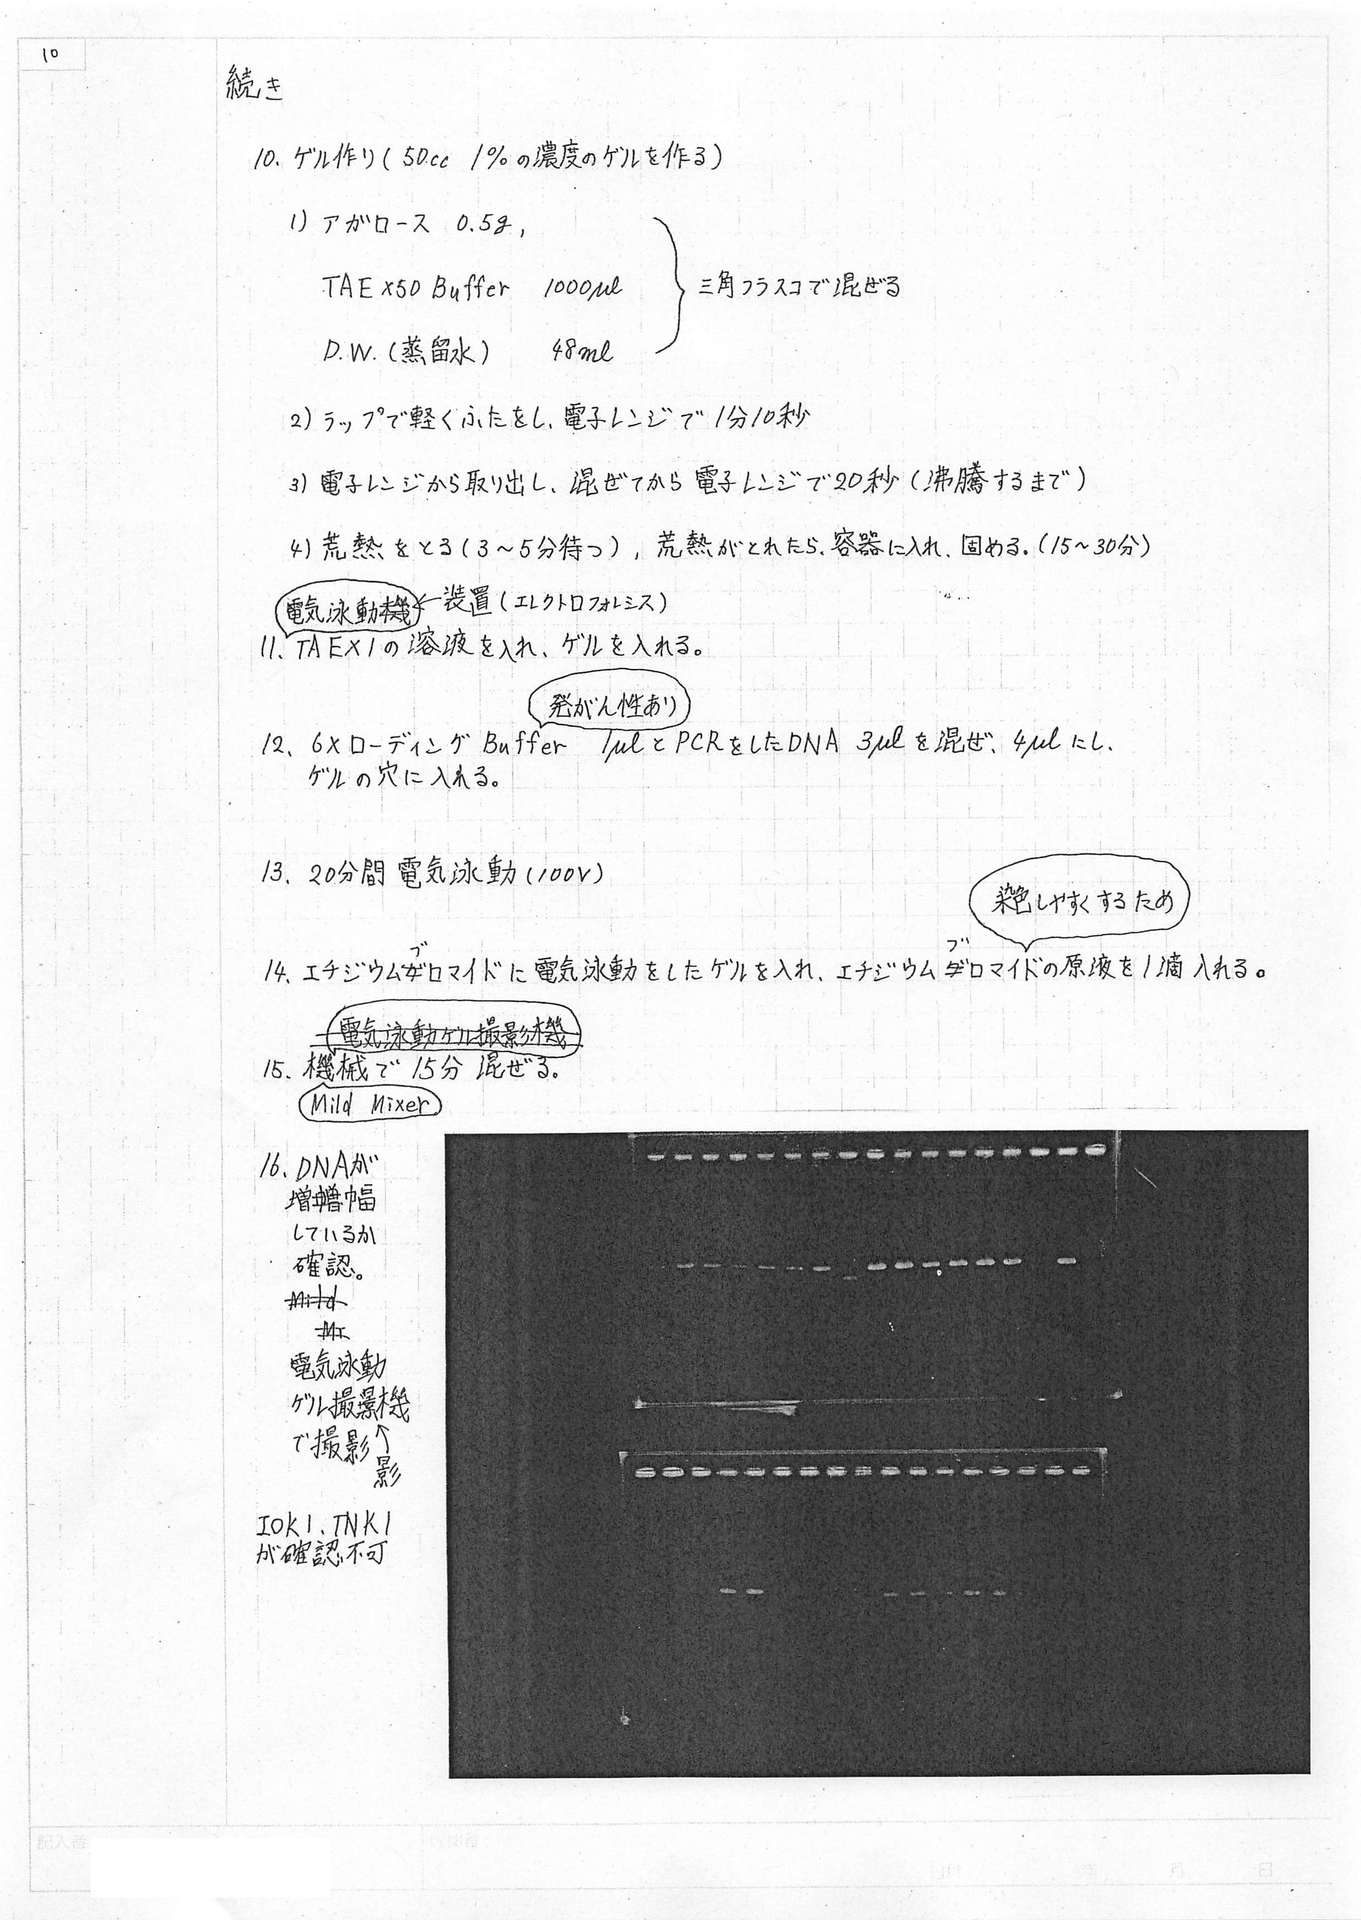 10
続き
10. ゲル作り(50cc 1%の濃度のゲルを作る)
1) アガロース 0.5g,
TAE×50 Buffer 1000μl
三角フラスコで混ぜる
D.W.(蒸留水) 48ml
2) ラップで軽くふたをし、電子レンジで1分10秒
3) 電子レンジから取り出し、混ぜてから電子レンジで20秒(沸騰するまで)
4) 荒熱をとる(3~5分待つ), 荒熱がとれたら、容器に入れ、固める。(15~30分)
電気泳動機←装置(エレクトロフォレシス)
11. TAE×1の溶液を入れ、ゲルを入れる。
発がん性あり
12. 6×ローディングBuffer 1μlとPCRをしたDNA 3μlを混ぜ、4μlにし、
ゲルの穴に入れる。
13. 20分間電気泳動(100V)
染色しやすくするため
14. エチジウムブロマイドに電気泳動をしたゲルを入れ、エチジウムブロマイドの原液を1滴入れる。
電気泳動ゲル撮影機
15. 機械で15分混ぜる。
Mild Mixer
16. DNAが
増幅
しているか
確認。
Mild
Mi
電気泳動
ゲル撮景機
で撮影↑
影
IOK1、TNK1
が確認不可
記入者